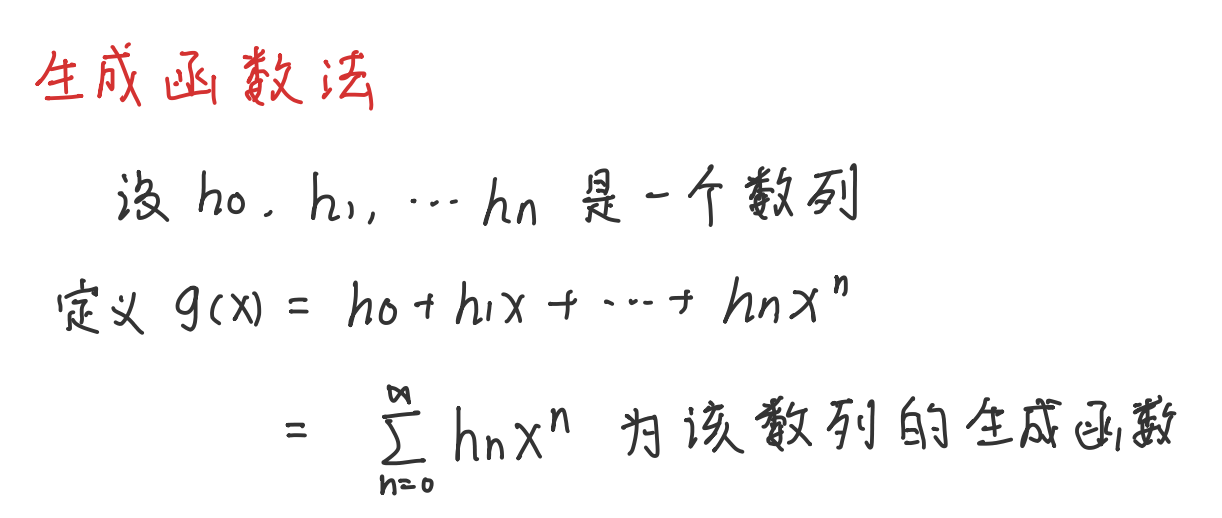 生成函数法
设 h₀. h₁, ⋯ hₙ 是一个数列
定义 g(x) = h₀ + h₁x + ⋯ + hₙxⁿ
= ∑_{n=0}^{∞} hₙxⁿ 为该数列的生成函数